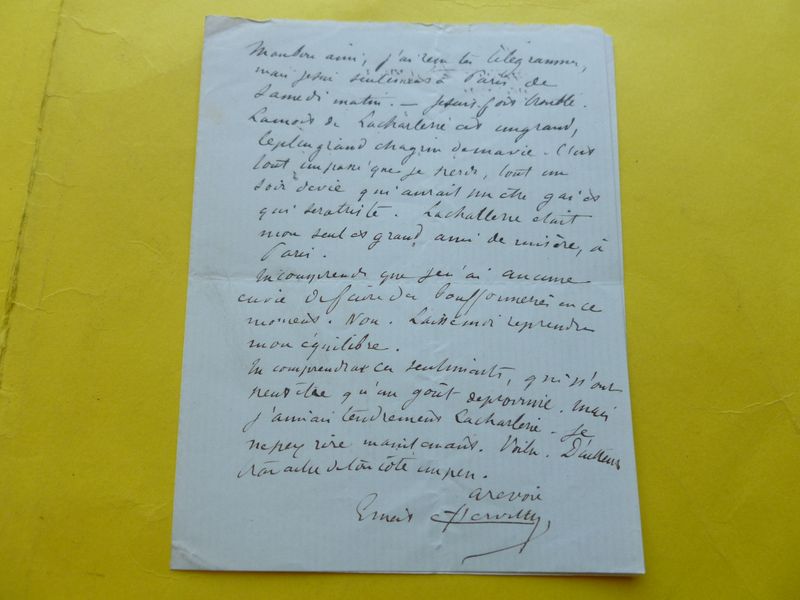 Mon bon ami, j'ai reçu tes télégrammes,
mais je suis seulement à Paris de
Samedi matin. — Je suis fort troublé.
La mort de Lacharlerie est un grand,
le plus grand chagrin de ma vie. C'est
tout un passé que je perds, tout un
soir de vie qui aurait pu être gai et
qui sera triste. Lacharlerie était
mon seul et grand ami de misère, à
Paris.
Tu comprends que je n'ai aucune
envie de faire des bouffonneries en ce
moment. Non. Laisse moi reprendre
mon équilibre.
Tu comprendras ces sentiments, qui n'ont
peut être qu'un goût de provincie. Mais
j'aimais tendrement Lacharlerie. Je
ne peux rire maintenant. Voilà. D'ailleurs
de ton côté un peu.
à revoir
Ernest d'Hervilly